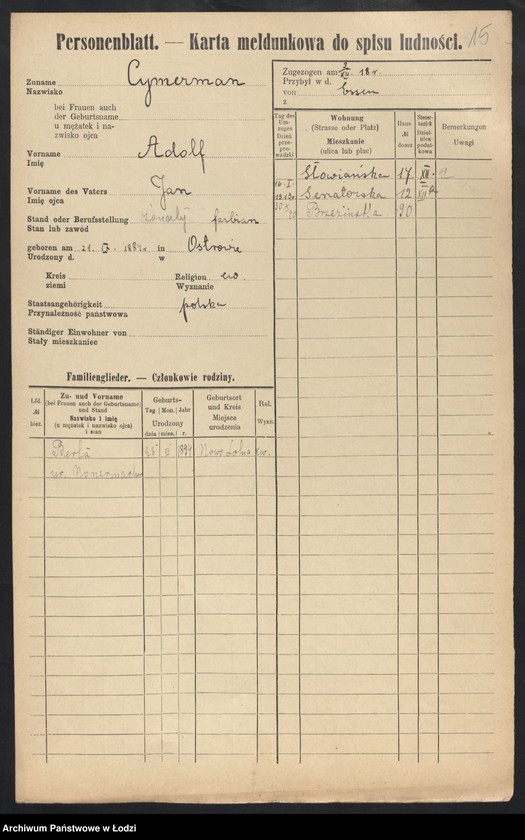 Personenblatt. — Karta meldunkowa do spisu ludności. 15
Zuname Cymerman
Nazwisko
bei Frauen auch
der Geburtsname
u mężatek i na-
zwisko ojca
Vorname Adolf
Imię
Vorname des Vaters Jan
Imię ojca
Stand oder Berufsstellung żonaty farbiarz
Stan lub zawód
geboren am 21. IX. 1884 r. in Ostrowie
Urodzony d. w
Kreis Religion ew
ziemi Wyznanie
Staatsangehörigkeit polska
Przynależność państwowa
Ständiger Einwohner von
Stały mieszkaniec
Zugezogen am XII. 18 r.
Przybył w d.
von Essen
z
Tag des Um-zuges Dzień prze-prowadzki
Wohnung
(Strasse oder Platz)
Mieszkanie
(ulica lub plac)
Haus № domu
Steuer-bezirk Dziel-nica podat-kowa
Bemerkungen
Uwagi
Słowiańska 17 XII
Senatorska 12 XII
Brzezińska 90
Familienglieder. — Członkowie rodziny.
Lfd. № bież.
Zu- und Vorname
(bei Frauen auch der Geburtsname)
und Stand
Nazwisko i imię
(u mężatek i nazwisko ojca)
i stan
Geburts-
Tag Mon. Jahr
Urodzony
dnia mies. r.
Geburtsort
und Kreis
Miejsce
urodzenia
Rel.
Wyzn.
Berta 25 1894 Nowosolna ew.
ur.
Archiwum Państwowe w Łodzi